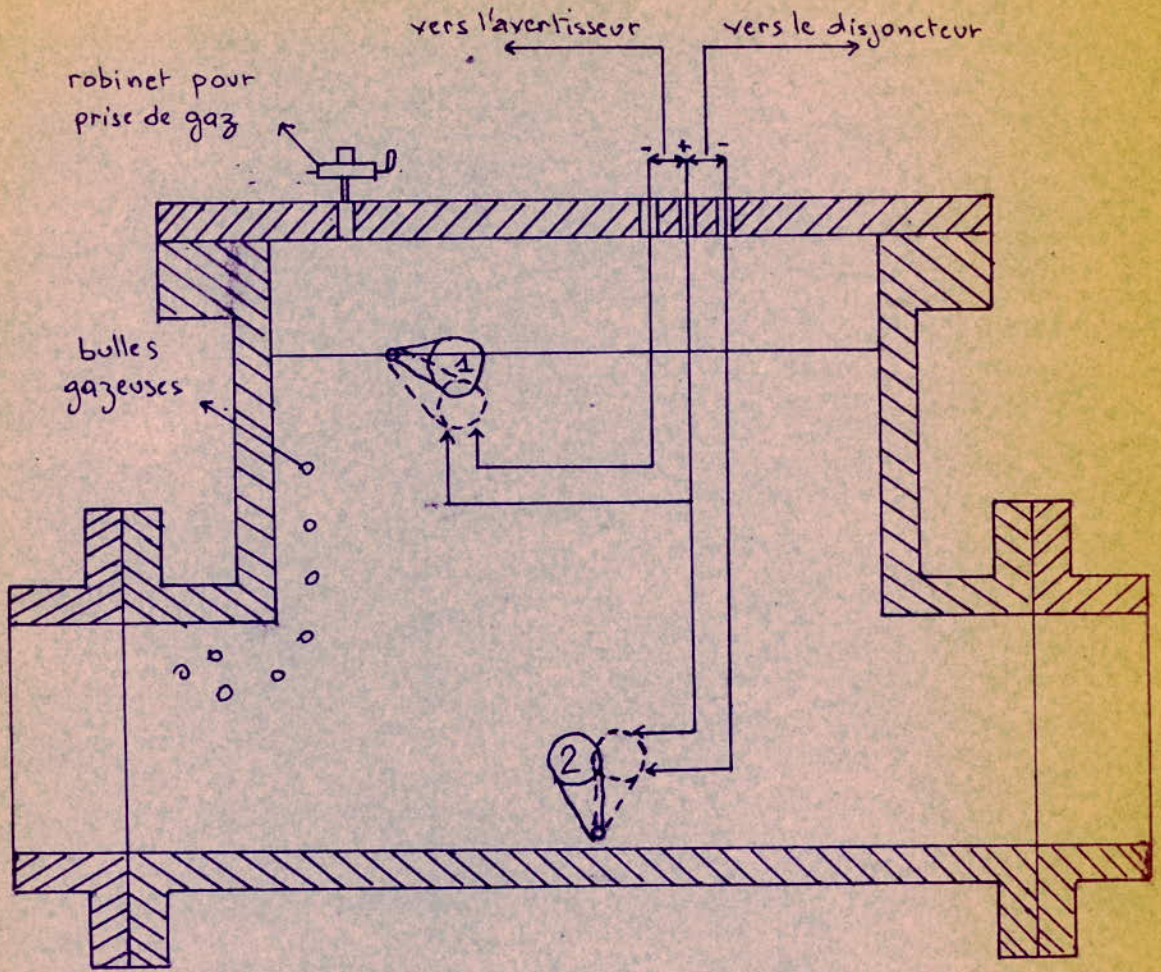 vers l'avertisseur
vers le disjoncteur
robinet pour
prise de gaz
- + -
bulles
gazeuses
1
2